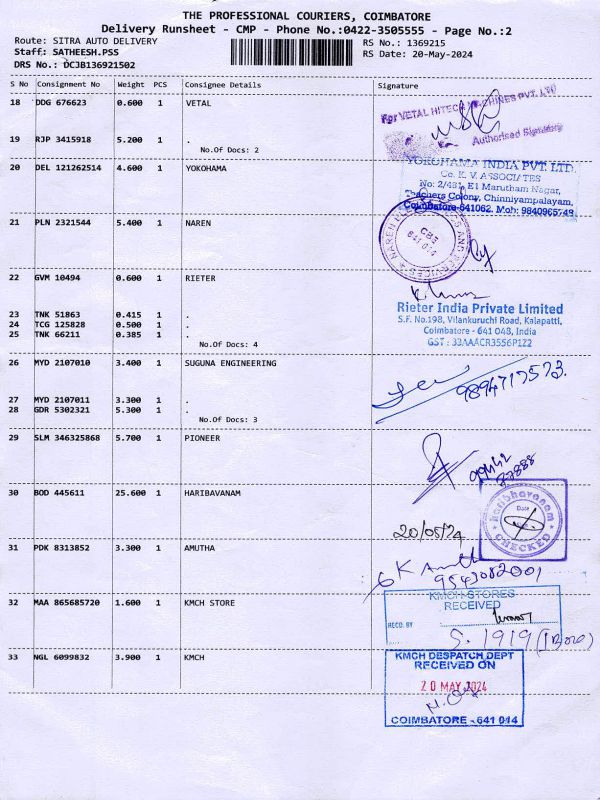 THE PROFESSIONAL COURIERS, COIMBATORE
Delivery Runsheet - CMP - Phone No.:0422-3505555 - Page No.:2
Route: SITRA AUTO DELIVERY
RS No.: 1369215
Staff: SATHEESH.PSS
RS Date: 20-May-2024
DRS No.: DCJB136921502
S No Consignment No Weight PCS Consignee Details Signature
18 DDG 676623 0.600 1 VETAL
For VETAL HITECH MACHINES PVT. LTD
Authorised Signatory
19 RJP 3415918 5.200 1 .
No.Of Docs: 2
20 DEL 121262514 4.600 1 YOKOHAMA
YOKOHAMA INDIA PVT. LTD.
Co. K. V. ASSOCIATES
No: 2/481, E1 Marutham Nagar,
Teachers Colony, Chinniyampalayam,
Coimbatore-641062. Moh: 9840965749
21 PLN 2321544 5.400 1 NAREN
CBE
641 014
22 GVM 10494 0.600 1 RIETER
Rieter India Private Limited
S.F. No.198, Vilankuruchi Road, Kalapatti,
Coimbatore - 641 048, India
GST : 33AAACR3556P1Z2
23 TNK 51863 0.415 1 .
24 TCG 125828 0.500 1 .
25 TNK 66211 0.385 1 .
No.Of Docs: 4
26 MYD 2107010 3.400 1 SUGUNA ENGINEERING
9894717573.
27 MYD 2107011 3.300 1 .
28 GDR 5302321 5.300 1 .
No.Of Docs: 3
29 SLM 346325868 5.700 1 PIONEER
30 BOD 445611 25.600 1 HARIBAVANAM
20/05/24
Haribhavanam
Date
CHECKED
31 PDK 8313852 3.300 1 AMUTHA
9543082001
32 MAA 865685720 1.600 1 KMCH STORE
KMCH-STORES
RECEIVED
RECD. BY
S. 1919 (1 Box)
33 NGL 6099832 3.900 1 KMCH
KMCH DESPATCH DEPT
RECEIVED ON
20 MAY 2024
COIMBATORE - 641 014